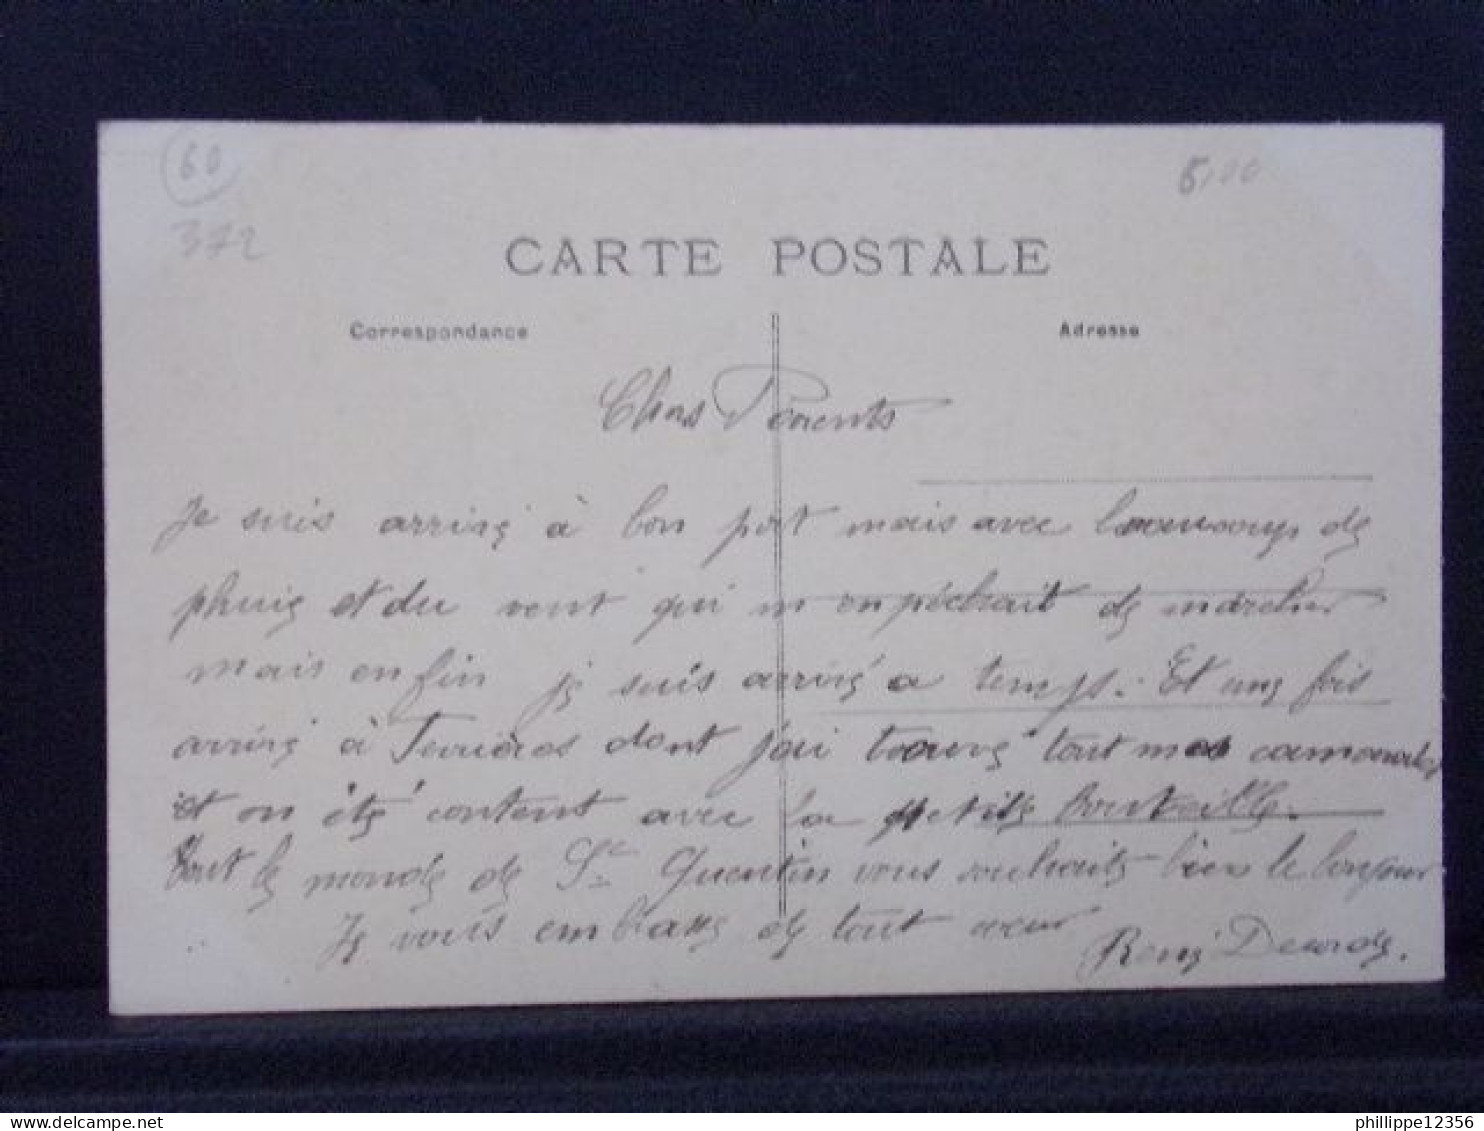 60
372
5,00
CARTE POSTALE
Correspondance
Adresse
Chers Parents
Je suis arrivé à bon port mais avec beaucoup de
pluie et du vent qui m enpéchait de marcher
mais enfin je suis arrivé a temp. Et une fois
arrivé à Ferrières dont j'ai trouvé tout mes camarades
et on été content avec la petite bouteille.
Tout le monde de St Quentin vous souhaite bien le bonjour
Je vous embrasse de tout cœur
René
phillippe12356